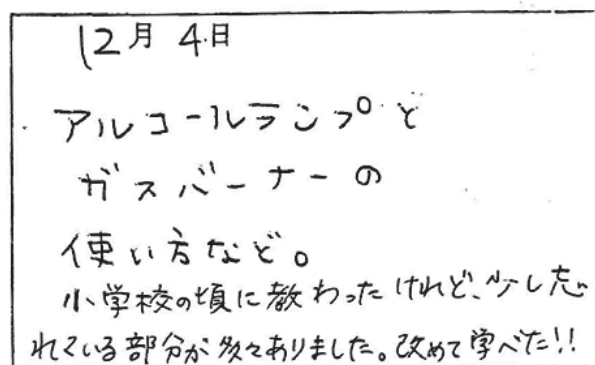 12月 4日
アルコールランプと
ガスバーナーの
使い方など。
小学校の頃に教わったけれど、少し忘
れている部分が多々ありました。改めて学べた!!